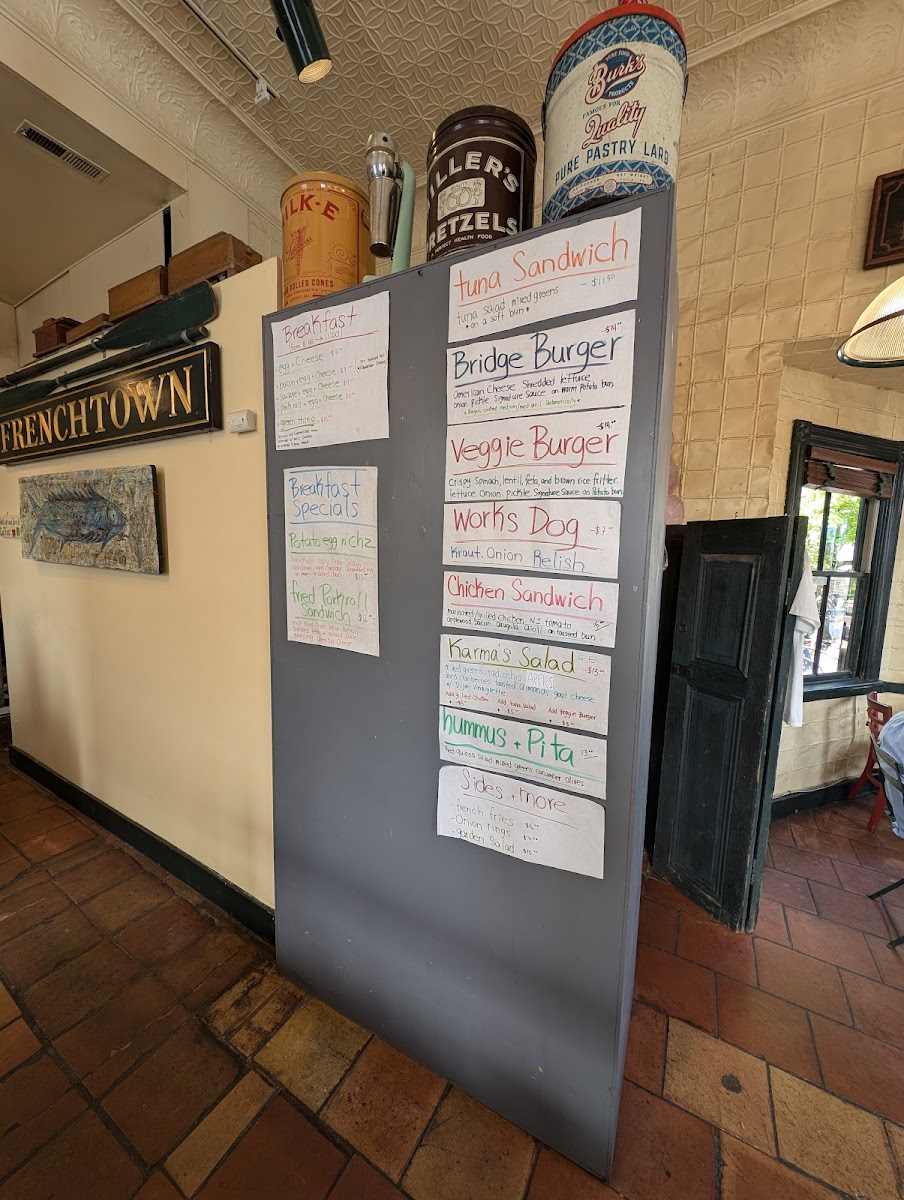 Burk's
PURE FOOD
PRODUCTS
FAMOUS FOR
Quality
PURE PASTRY LARD
ILLER'S
RETZELS
PERFECT HEALTH FOOD
ILK-E
ROLLED CONES
FRENCHTOWN
Breakfast
egg + Cheese
bacon + egg + Cheese
Sausage + egg + Cheese
Pork roll + egg + Cheese
green thing
Breakfast
Specials
Potato egg n chz
$11
fried Porkroll
Sandwich
$12
tuna Sandwich
- $11.50
tuna salad mixed greens
• on a soft bun •
-$14
Bridge Burger
American Cheese Shredded lettuce
onion Pickle Signature Sauce on warm Potato bun
-$15
Veggie Burger
Crispy Spinach, lentil, feta, and brown rice fritter.
lettuce. Onion. Pickle. Signature Sauce on Potato bun
Works Dog -$7
Kraut. Onion. Relish
Chicken Sandwich
Marinated/Grilled Chicken NJ tomato
applewood bacon arugula aioli on toasted bun
Karma's Salad
-$13
Mixed greens radicchio APPLES
dried cranberries toasted almonds goat cheese
w/ Dijon vinaigrette
Add grilled Chicken Add tuna Salad Add Veggie Burger
hummus + Pita
Red quinoa salad mixed greens cucumber olives
Sides + more
-french fries
-Onion rings
-garden Salad